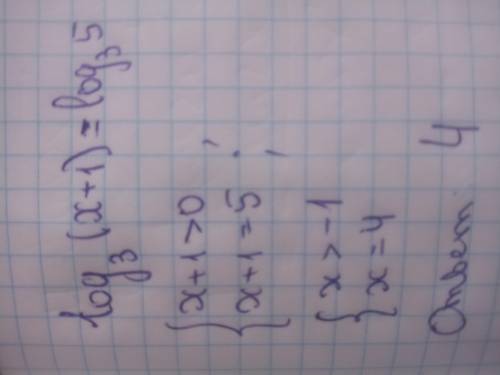 log₃ (x+1) = log₃ 5
{ x+1 > 0 ;
{ x+1 = 5 ;
{ x > -1
{ x = 4
Ответ 4